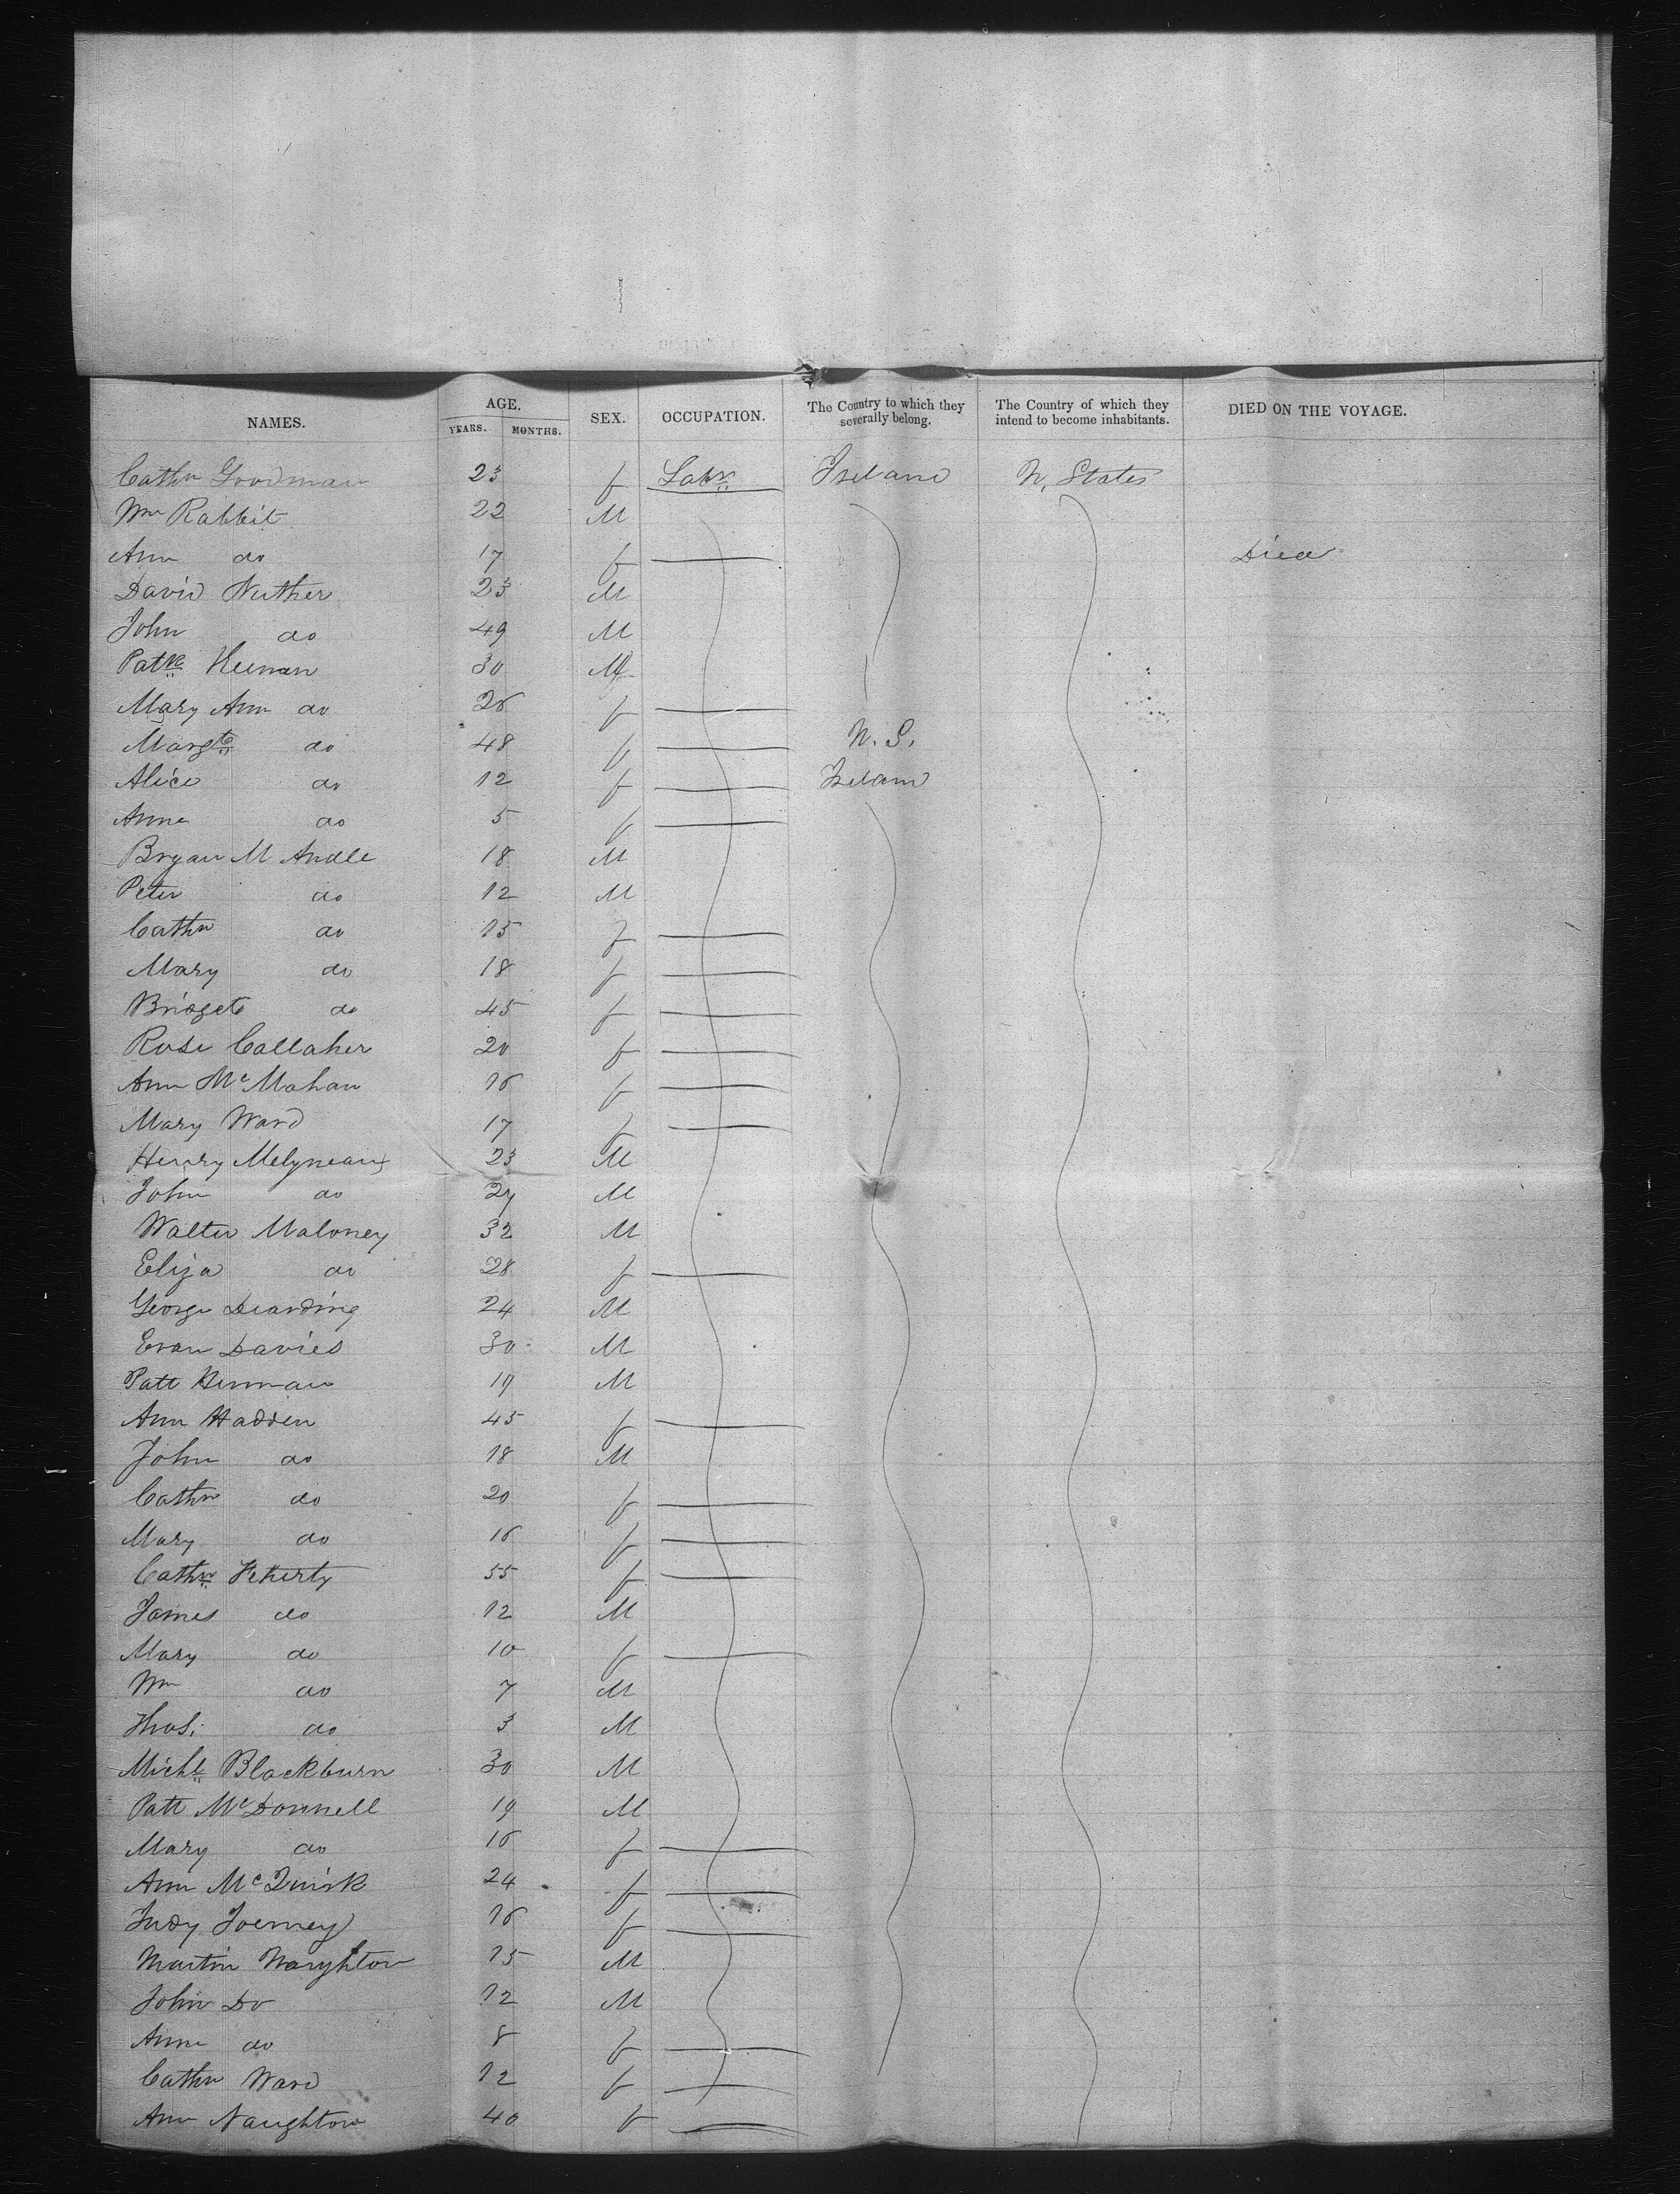 NAMES. AGE. YEARS. MONTHS. SEX. OCCUPATION. The Country to which they severally belong. The Country of which they intend to become inhabitants. DIED ON THE VOYAGE.
Cathn Goodman 23 f Labr Ireland U. States
Wm Rabbit 22 M
Ann do 17 f Died
David Nuther 23 M
John do 49 M
Patk Heenan 30 M
Mary Ann do 26 f
Margt do 48 f U. S.
Alice do 12 f Ireland
Anne do 5 f
Bryan M Ardle 18 M
Peter do 12 M
Cathn do 15 f
Mary do 18 f
Bridget do 45 f
Rose Callaher 20 f
Ann Mc Mahan 16 f
Mary Ward 17 f
Henry Melyneaux 23 M
John do 27 M
Walter Maloney 32 M
Eliza do 28 f
George Dearding 24 M
Evan Davies 30 M
Patt 19 M
Ann Hadden 45 f
John do 18 M
Cathn do 20 f
Mary do 16 f
Cathn Feherty 55 f
James do 12 M
Mary do 10 f
Wm do 7 M
Thos. do 3 M
Michl Blackburn 30 M
Patt McDonnell 19 M
Mary do 16 f
Ann Mc Quirk 24 f
Judy 16 f
Martin Naughton 15 M
John Do 12 M
Anne do 8 f
Cathn Ward 12 f
Ann Naughton 40 f